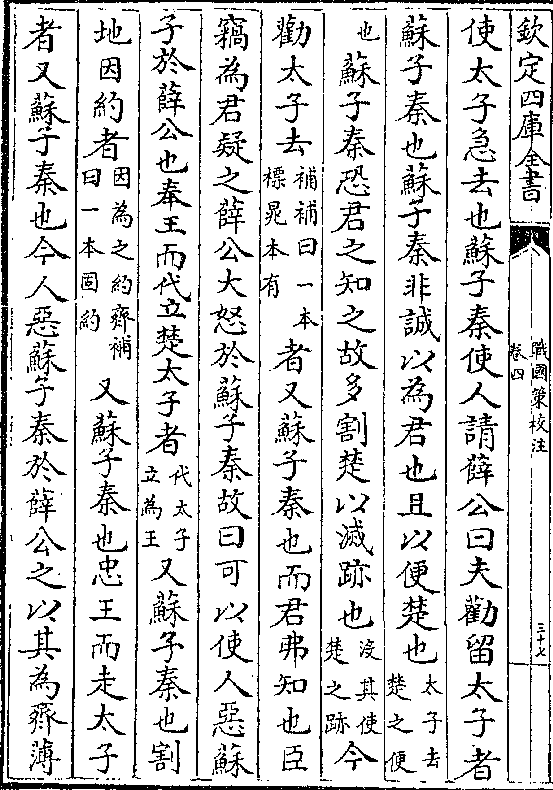 欽定四庫全書
戰國策校注
卷四
三十七
使太子急去也蘇子秦使人請薛公曰夫勸留太子者
蘇子秦也蘇子秦非誠以為君也且以便楚也太子去楚之便
也蘇子秦恐君之知之故多割楚以滅跡也沒其使楚之跡今
勸太子去補補曰一本標晁本有者又蘇子秦也而君弗知也臣
竊為君疑之薛公大怒於蘇子秦故曰可以使人惡蘇
子於薛公也奉王而代立楚太子者代太子立為王又蘇子秦也割
地因約者因為之約齊補曰一本固約又蘇子秦也忠王而走太子
者又蘇子秦也今人惡蘇子秦於薛公之以其為齊薄